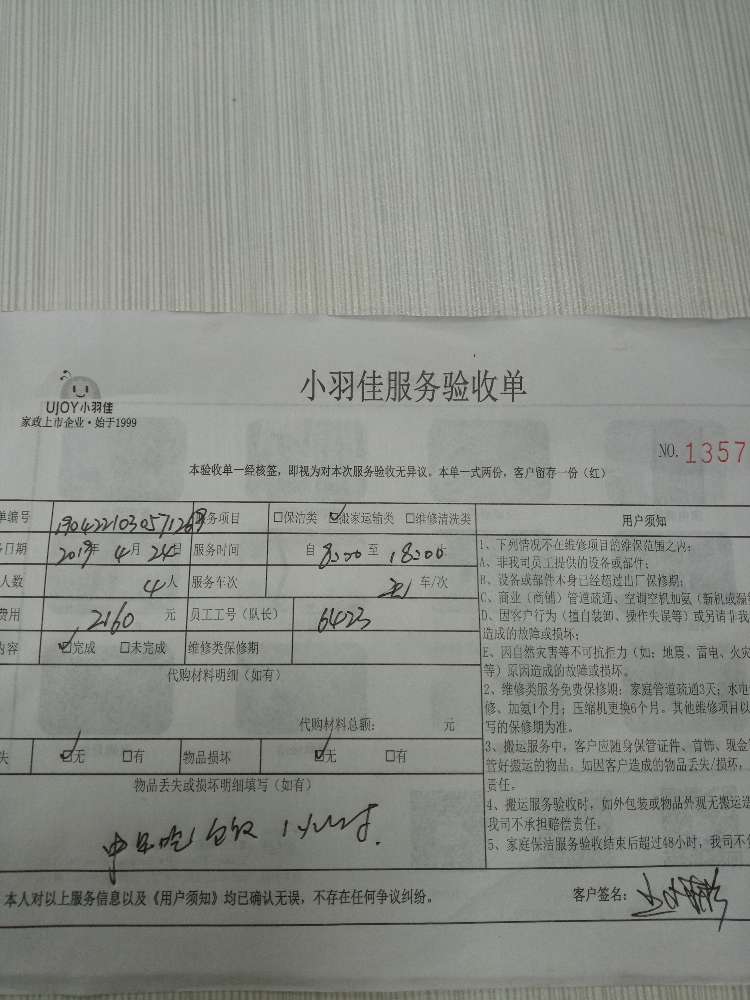 UJOY小羽佳
家政上市企业·始于1999
小羽佳服务验收单
NO. 1357
本验收单一经核签，即视为对本次服务验收无异议。本单一式两份，客户留存一份（红）
单编号 服务项目 □保洁类 ☑搬家运输类 □维修清洗类 用户须知
日期 2019年 4月 24日 服务时间 自 8:00 至 18:00
人数 4人 服务车次 车/次
费用 2160 元 员工工号（队长） 64023
内容 ☑完成 □未完成 维修类保修期
代购材料明细（如有）
代购材料总额： 元
失 ☑无 □有 物品损坏 ☑无 □有
物品丢失或损坏明细填写（如有）
中午吃饭 1小时.
1、下列情况不在维修项目的维保范围之内：
A、非我司员工提供的设备或部件；
B、设备或部件本身已经超过出厂保修期；
C、商业（商铺）管道疏通、空调空机加氨（新机或漏
D、因客户行为（擅自装卸、操作失误等）或另请非我
造成的故障或损坏；
E、因自然灾害等不可抗拒力（如：地震、雷电、火灾
等）原因造成的故障或损坏。
2、维修类服务免费保修期：家庭管道疏通3天；水电
修、加氨1个月；压缩机更换6个月。其他维修项目以
写的保修期为准。
3、搬运服务中，客户应随身保管证件、首饰、现金
管好搬运的物品，如因客户造成的物品丢失/损坏，
责任。
4、搬运服务验收时，如外包装或物品外观无搬运造
我司不承担赔偿责任。
5、家庭保洁服务验收结束后超过48小时，我司不
本人对以上服务信息以及《用户须知》均已确认无误，不存在任何争议纠纷。
客户签名：